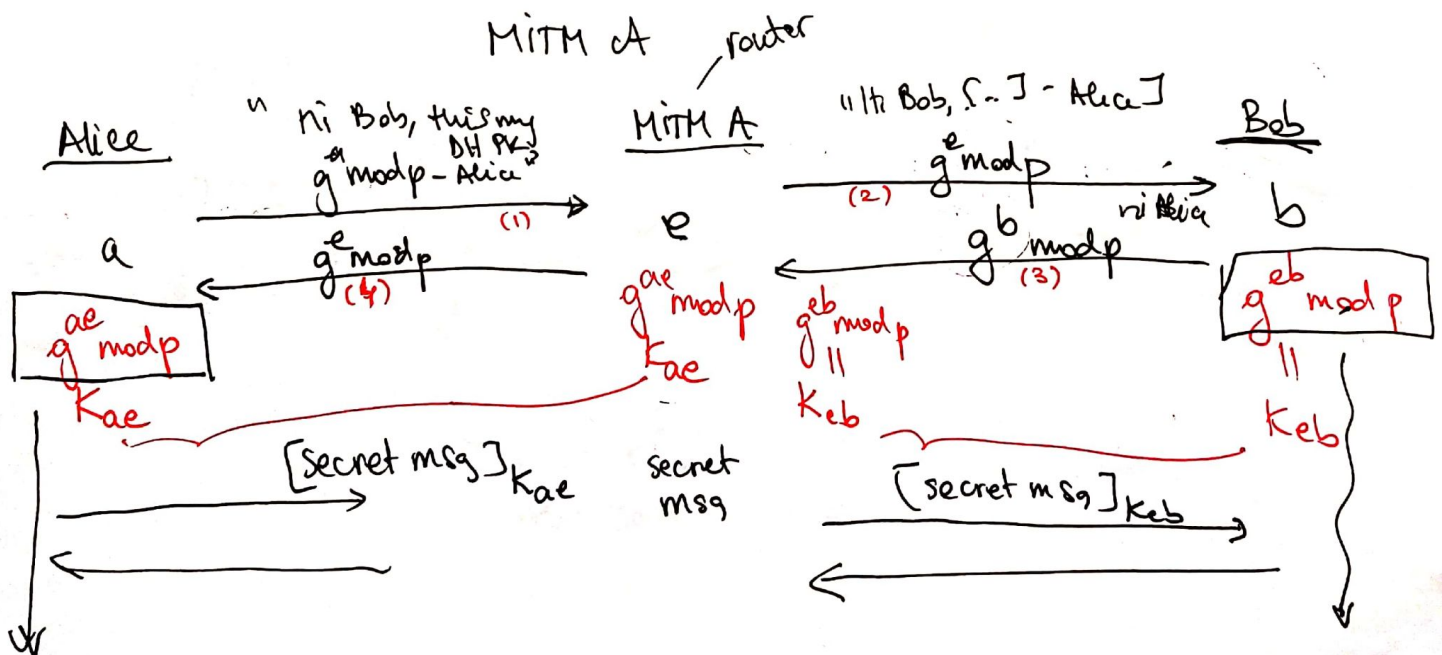 MITM A
router
Alice
" hi Bob, this my
DH PK
g^a mod p - Alice"
MITM A
"Hi Bob, [..] - Alice]
g^e mod p
Bob
(1)
(2)
hi Alice
a
g^e mod p
(4)
e
g^b mod p
(3)
b
g^ae mod p
Kae
g^ae mod p
Kae
g^eb mod p
||
Keb
g^eb mod p
||
Keb
[secret msg]Kae
secret
msg
[secret msg]Keb